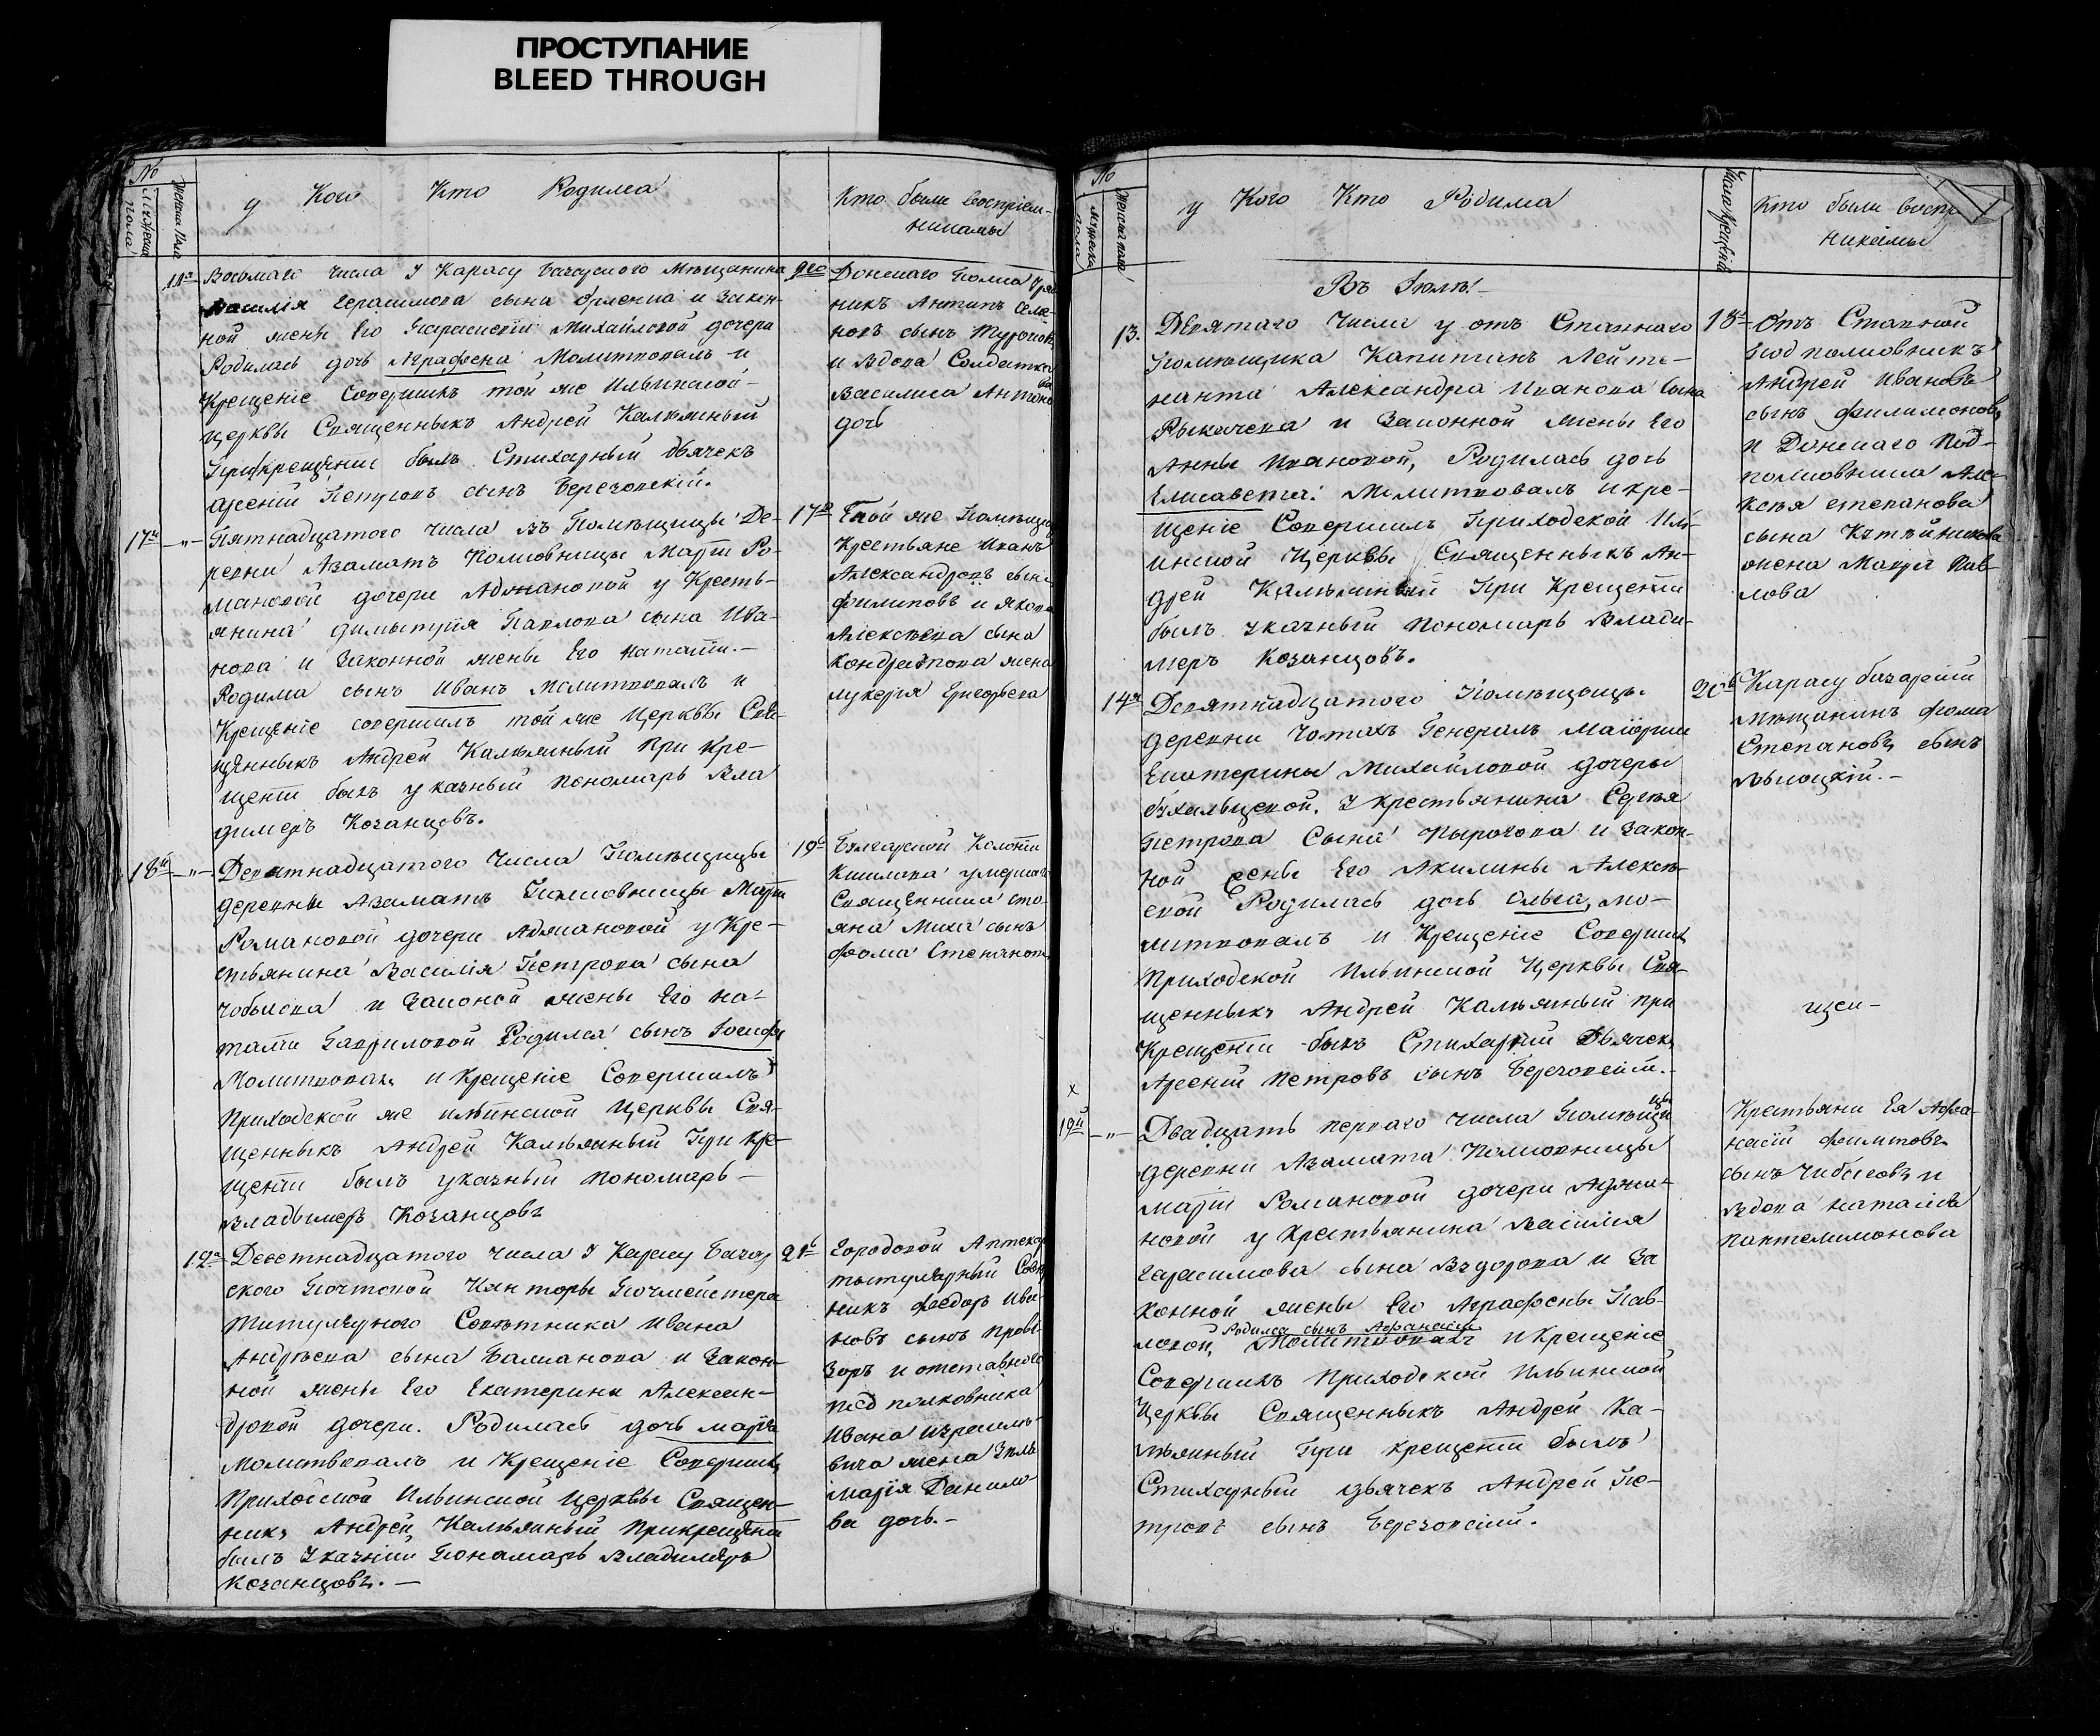 ПРОСТУПАНИЕ
BLEED THROUGH
№
Мужеска пола
Женска пола
у Кого Кто Родился
Кто были воспріем-
никамы
11я
Восьмаго числа у Карасу базарского Мещанина
Василія Герасимова сына и Закон-
ной жены Его Парасковіи Михайловой дочери
Родилась дочь Аграфена Молитвовалъ и
Крещеніе Совершилъ той же Ильинской
Церквы Священныкъ Андрей Калежный
Прикрещеніи былъ Стихарный дьячекъ
Арсеній Петровъ сынъ Березовскій.
9го
Донскаго Полка уряд
никъ Антипъ Семе-
новъ сынъ
и Вдова Солдатка
Василиса Антонова
дочь
17й
Пятнадцатого числа въ Помещицы Де-
ревни Азаматъ Полковницы Марfи Ро-
мановой дочери Аджановой у Кресть-
янина димытрія Павлова сына Ива-
нова и Законной жены Его Наталіи.
Родился сынъ Иванъ Молитвовалъ и
Крещеніе совершилъ той же Церквы Свя-
щенныкъ Андрей Калежный При Кре-
щеніи былъ указный пономарь Вла
димеръ Козанцовъ.
17го
Той же Помещицы
Крестьяне Иванъ
Александровъ сынъ
Филиповъ и Якова
Алексеева сына
Кондратова жена
Лукерія Григорьева
18й
Девятнадцатого Числа Помещицы
деревны Азаматъ Полковницы Марfи
Романовой дочери Аджановой у Кре-
стьянина Василія Петрова сына
Чобысова и Законой жены Его На-
таліи Гавриловой Родился сынъ Іосифъ
Молитвовалъ и Крещеніе Совершилъ
Приходской же Ильинской Церквы Свя-
щенныкъ Андрей Калежный При Кре-
щеніи былъ указный пономарь
Владымеръ Козанцовъ
19го
Болгарской Колоніи
Кишлава умершаго
Священника Сто-
яна Миха сынъ
Фома Степановъ
12я
Девятнадцатого числа у Карасу Базар
ского Почтовой Канторы Почмейстера
Титулярного Советника Ивана
Андреева сына Балманова и Закон-
ной жены Его Екатерины Алексан-
дровой дочери. Родилась дочь Марія
Молитвовалъ и Крещеніе Совершилъ
Приходской Ильинской Церквы Священ-
никъ Андрей Калежный Прикрещеніи
былъ Указній Пономарь Владимеръ
Козанцовъ.
21го
Городовой Аптекарь
тытулярный Совет
никъ Федоръ Ива-
новъ сынъ прови-
зоръ и отставного
подполковника
Ивана Израиле-
вича жена
Марія Данило-
ва дочь.
№
Мужеска пола
Женска пола
у Кого Кто Родился
Числа Крещенія
Кто были воспр
никамы
Въ Іюлѣ
13.
Девятаго Числа у отъ Ставнаго
Помѣщика Капитанъ Лейте-
нанта Александра Иванова сына
Рыкачева и Законной жены Его
Анны Ивановой, Родилась дочь
Елисавета: Молитвовалъ и кре-
щеніе Совершилъ Приходской Иль-
инской Церквы Священныкъ Ан-
дрей Калежный При Крещеніи
былъ указный Пономарь Влади-
меръ Козанцовъ.
18го
Отъ Ставной
Подполковникъ
Андрей Ивановъ
сынъ Филимоновъ
и Донскаго Под-
полковника Але-
ксѣя Степанова
сына Кутейникова
жена Марfа Пав
лова
14я
Девятнадцатого Помѣщицы
деревни Чотахъ Генералъ Маіорши
Екатерины Михайловой дочери
У крестьянина Сергѣя
Петрова Сына и Закон-
ной жены Его Акилины Алексе-
евой Родилась дочь Ольга, мо-
литвовалъ и Крещеніе Совершилъ
Приходской Ильинской Церквы Свя-
щенныкъ Андрей Калежный при
Крещеніи былъ Стихарній Дьячекъ
Арсеній Петровъ сынъ Березовскій.
20го
Карасу базарскій
Мѣщанинъ Фома
Степановъ сынъ
Высоцкій.
щен-
х
19й
Двадцать перваго числа Помѣщицы
деревни Азамата Полковницы
Марfи Романовой дочери Аджа-
новой у Крестьянина Василія
Герасимова сына Вздорова и За
конной жены Его Аграфены Пав-
ловой, Родился сынъ Афанасій Молитвовалъ и Крещеніе
Совершилъ Приходской Ильинской
Церквы Священныкъ Андрей Ка-
лежный При крещеніи былъ
Стихарный дьячекъ Андрей Пе-
тровъ сынъ Березовскій.
Крестьяни Ея Афа-
насій Филиповъ
сынъ Чибысовъ и
Вдова Наталія
Пантелимонова